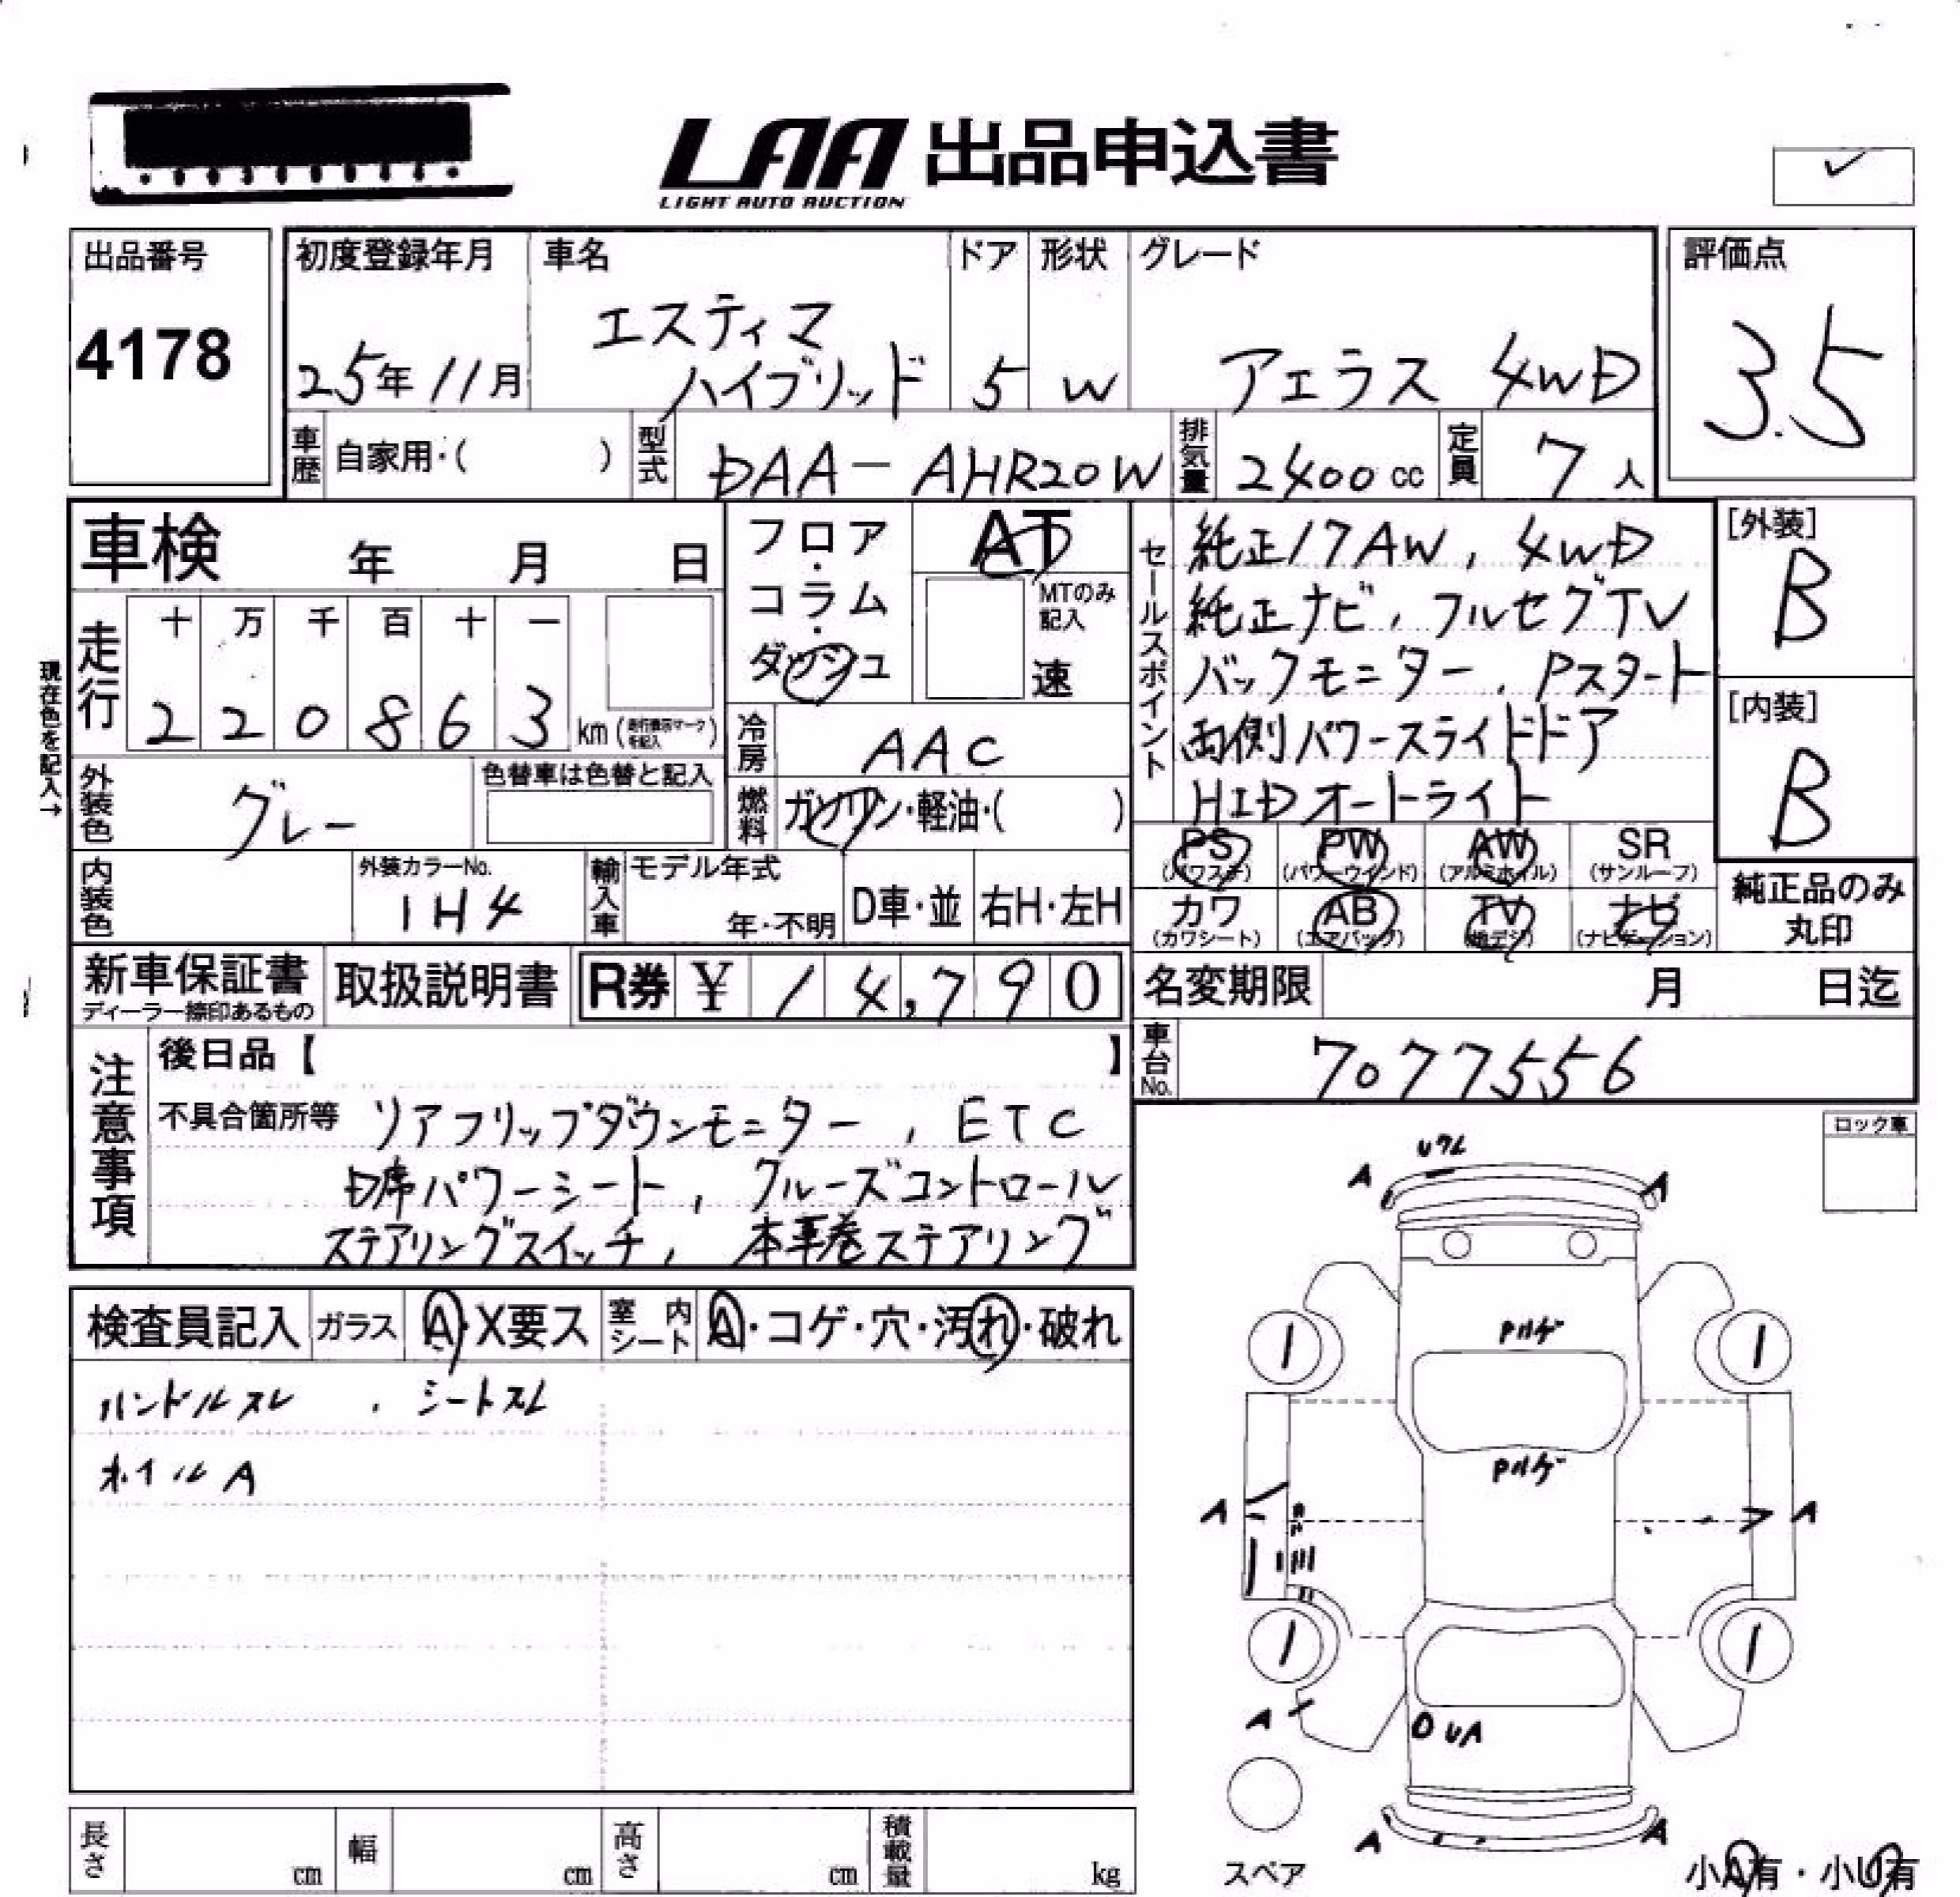 LAA 出品申込書
LIGHT AUTO AUCTION
出品番号
4178
初度登録年月
25年11月
車名
エスティマ
ハイブリッド
ドア
5
形状
W
グレード
アエラス 4WD
評価点
3.5
車歴 自家用・( )
型式 DAA-AHR20W
排気量 2400cc
定員 7人
車検 年 月 日
フロア・コラム・ダッシュ
AT
MTのみ記入
速
走行
十 万 千 百 十 一
2 2 0 8 6 3 km(走行表示マークを記入)
現在色を記入→
外装色 グレー
色替車は色替と記入
冷房 AAC
燃料 ガソリン・軽油・( )
セールスポイント
純正17AW, 4WD
純正ナビ, フルセグTV
バックモニター, Pスタート
両側パワースライドドア
HIDオートライト
[外装]
B
[内装]
B
PS (パワステ)
PW (パワーウインド)
AW (アルミホイル)
SR (サンルーフ)
カワ (カワシート)
AB (エアバッグ)
TV (地デジ)
ナビ (ナビゲーション)
純正品のみ
丸印
内装色
外装カラーNo.
1H4
輸入車
モデル年式
年・不明
D車・並
右H・左H
新車保証書
ディーラー捺印あるもの
取扱説明書
R券 ¥ 14,790
名変期限 月 日迄
車台No. 7077556
注意事項
後日品【 】
不具合箇所等 リアフリップダウンモニター, ETC
D席パワーシート, クルーズコントロール
ステアリングスイッチ, 本革巻ステアリング
ロック車
検査員記入
ガラス A・X要ス
室内シート A・コゲ・穴・汚れ・破れ
ハンドルスレ, シートスレ
ホイルA
A
A
Pハゲ
Pハゲ
A
A
A
UA
A
A
スペア
小A有・小U有
長さ cm
幅 cm
高さ cm
積載量 kg